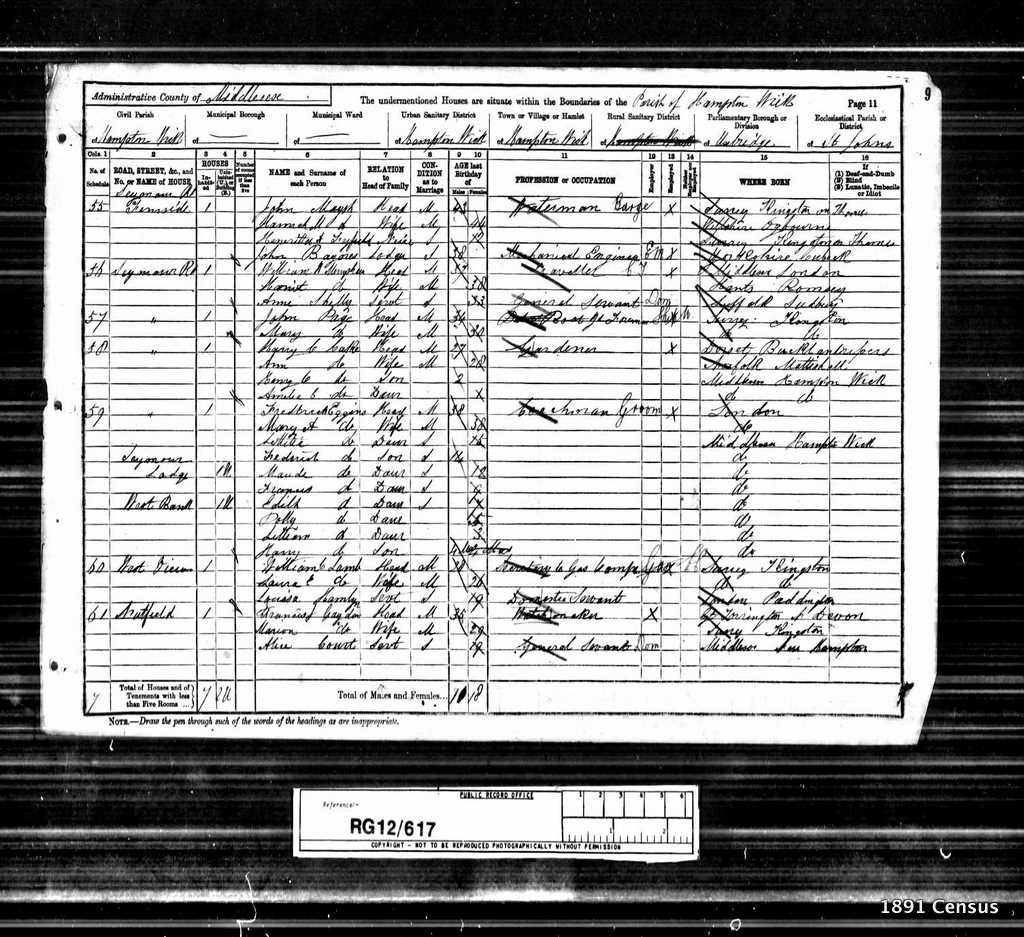 Administrative County of Middlesex
The undermentioned Houses are situate within the Boundaries of the Parish of Hampton Wick
Page 11
9
Civil Parish
Municipal Borough
Municipal Ward
Urban Sanitary District
Town or Village or Hamlet
Rural Sanitary District
Parliamentary Borough or Division
Ecclesiastical Parish or District
of Hampton Wick
of
of
of Hampton Wick
of Hampton Wick
of Hampton Wick
of Uxbridge
of St Johns
Cols. 1 2 3 4 5 6 7 8 9 10 11 12 13 14 15 16
No. of Schedule
ROAD, STREET, &c., and No. or NAME of HOUSE
HOUSES
In-habited
Unin-habited (U.) or Building (B.)
Number of rooms occupied if less than five
NAME and Surname of each Person
RELATION to Head of Family
CON-DITION as to Marriage
AGE last Birthday of
Males
Females
PROFESSION or OCCUPATION
Employer
Employed
Neither Employer nor Employed
WHERE BORN
If
(1) Deaf-and-Dumb
(2) Blind
(3) Lunatic, Imbecile or Idiot
Seymour Rd
55 Fernside 1 John Head M 43 Waterman Barge X Surrey Kingston on Thames
Hannah Do Wife M 44 Wiltshire Ogbourne
Niece Surrey Kingston on Thames
John Lodger S 38 Mechanical Engineer X
56 Seymour Rd 1 William Head M 47 Traveller X Middlesex London
Do Wife M 38 Hants Romsey
Anne Servt S 33 General Servant Dom Suffolk Sudbury
57 " 1 John Page Head M 34 Surrey Kingston
Mary do Wife M do do
58 " 1 Harry C Head M 27 Gardener X Dorset
Ann do Wife M 28 Norfolk
Henry C do Son 2 Middlesex Hampton Wick
Amelia C do Daur do do
59 " 1 Frederick Eggins Head M 38 Coachman Groom X London
Mary A do Wife M 38 do
do Daur S Middlesex Hampton Wick
Seymour Frederick do Son S 14 do
Lodge 1U Maude do Daur S do
Frances do Daur S do
West Bank 1U Edith do Daur S do
Polly do Daur 5 do
Lilliam do Daur 3 do
Harry do Son 4 Mos do
60 West View 1 William C Lamb Head M Secretary to Gas Comp X Surrey Kingston
Laura E do Wife M 26 do do
Louisa Servt S 19 Domestic Servant London Paddington
61 Nutfield 1 Francis Gaydon Head M 35 Watchmaker X Gt Torrington Devon
Marion do Wife M 29 Surrey Kingston
Alice Court Servt S 19 General Servant Dom Middlesex New Hampton
7 Total of Houses and of Tenements with less than Five Rooms ... 7 2U
Total of Males and Females... 10 18
NOTE.—Draw the pen through such of the words of the headings as are inappropriate.
PUBLIC RECORD OFFICE
1 2 3 4 5 6
Reference:-
RG12/617
1 2
COPYRIGHT - NOT TO BE REPRODUCED PHOTOGRAPHICALLY WITHOUT PERMISSION
1891 Census